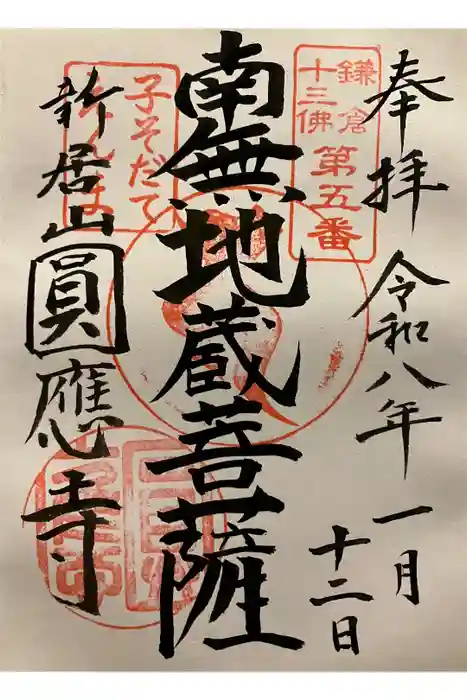 奉拝 令和八年
一月
十二日
鎌倉
十三佛
第五番
南無地蔵菩薩
子そだて
新居山圓應寺